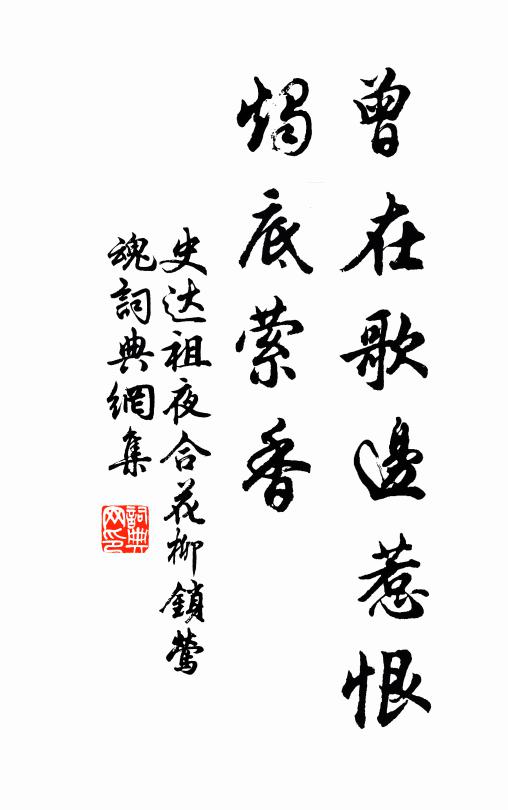 曾在歌邊惹恨
燭底萦香
史达祖夜合花柳鎖鶯
魂詞典網集
詞典网印